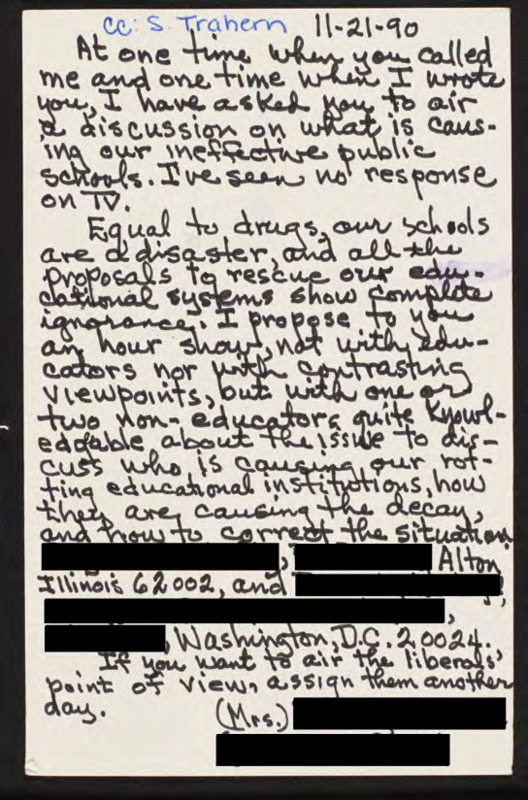 cc: S. Trahern 11-21-90
At one time when you called
me and one time when I wrote
you, I have asked you to air
a discussion on what is caus-
ing our ineffective public
schools. I've seen no response
on TV.
Equal to drugs, our schools
are a disaster, and all the
proposals to rescue our edu-
cational systems show complete
ignorance. I propose to you
an hour show, not with edu-
cators nor with contrasting
viewpoints, but with one or
two non-educators quite knowl-
edgable about the issue to dis-
cuss who is causing our rot-
ting educational institutions, how
they are causing the decay,
and how to correct the situation
, Alton,
Illinois 62002, and
, Washington, D.C. 20024.
If you want to air the liberals'
point of view, assign them another
day. (Mrs.)